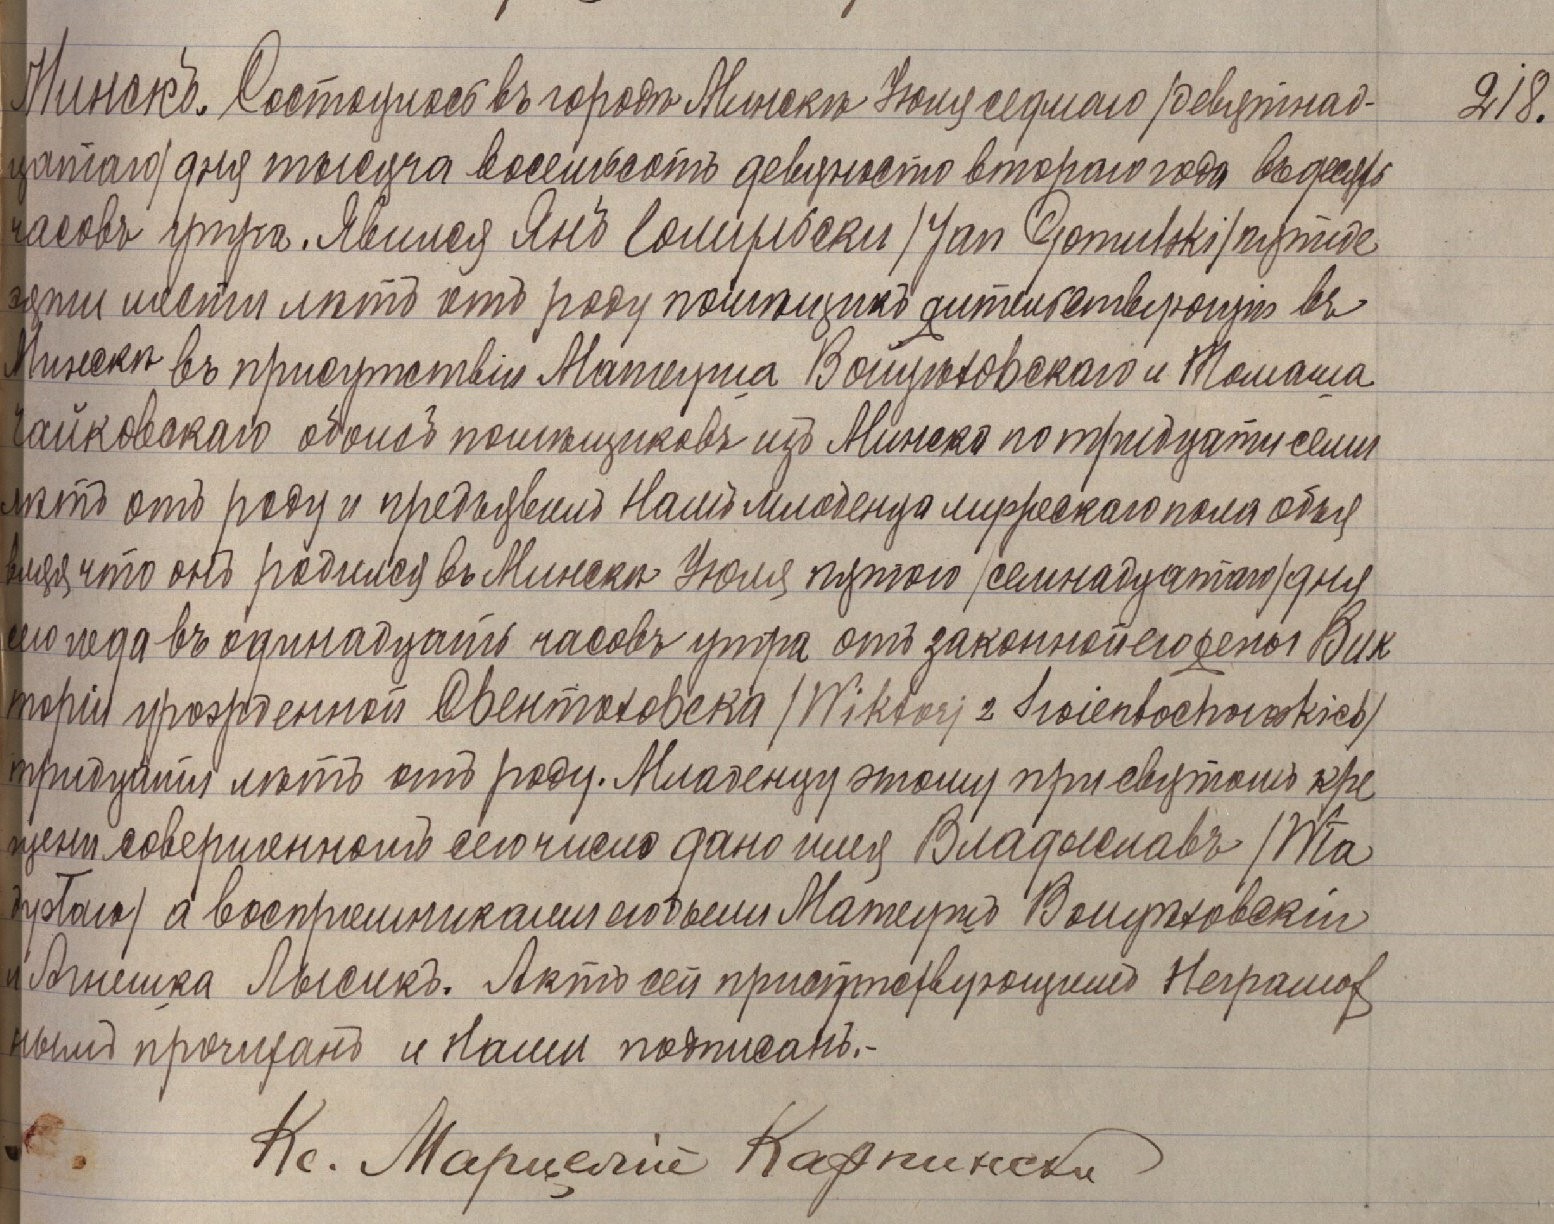 Минскъ. Состоялось въ городѣ Минскѣ Іюля седмаго /девятнад- 218.
цатаго/ дня тысяча восемьсотъ девяносто втораго года въ десять
часовъ утра. Явился Янъ Гомульски /Jan Gomulski/ пятиде
сяти шести лѣтъ отъ роду помѣщикъ жительствующій въ
Минскѣ въ присутствіи Матеуша Войцѣховскаго и Томаша
Чайковскаго обоихъ помѣщиковъ изъ Минска по тридцати семи
лѣтъ отъ роду и предъявилъ Намъ младенца мужескаго пола объя
вляя что онъ родился въ Минскѣ Іюля пятого /семнадцатаго/ дня
сего года въ одинадцать часовъ утра отъ законной его жены Вик
торіи урожденной Свентоховска /Wiktorj z Swientochowskich/
тридцати лѣтъ отъ роду. Младенцу этому при святомъ кре
щени совершенномъ сего числа дано имя Владыславъ /Wła
dysław/ а воспреемниками его были Матеушъ Войцѣховскій
и Агнешка Лысикъ. Актъ сей присутствующимъ Неграмот
нымъ прочитанъ и Нами подписанъ.-
Кс. Марцелій Карпински